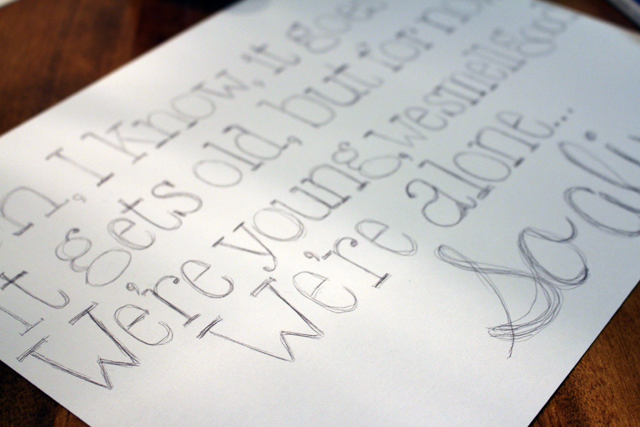 n, I Know, it goes
It gets old, but for no
We're young, we smell good
We're alone...
so